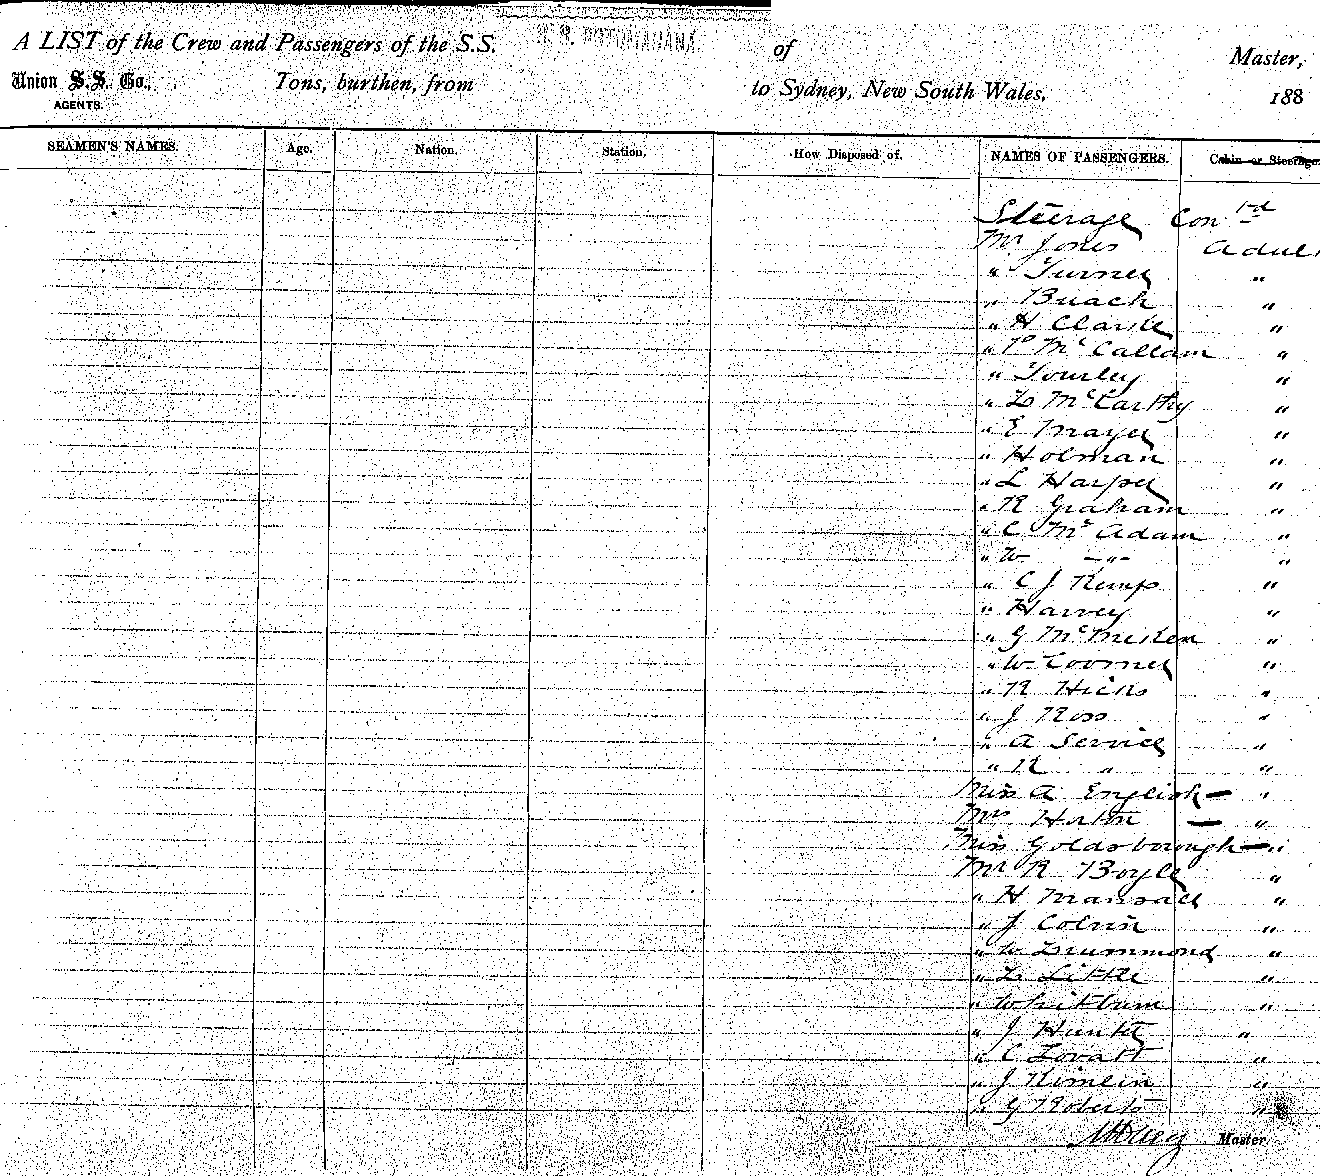 A LIST of the Crew and Passengers of the S.S. of Master,
Union S.S. Co., Tons, burthen, from to Sydney, New South Wales, 188
AGENTS.
SEAMEN'S NAMES. Age. Nation. Station. How Disposed of. NAMES OF PASSENGERS. Cabin or Steerage.
Steerage Con td
Mr Jones Adul
" Turner "
" Buack "
" H Clarke "
" P McCallam "
" Tourley "
" D McCarthy "
" E Mayer "
" Holman "
" L Harper "
" R Graham "
" C McAdam "
" W -"- "
" C J Kemp "
" Harvey "
" G McMeiken "
" W "
" R Hicks "
" J Ross "
" A Service "
" R " "
Miss A English - "
Mrs Horton - "
Miss Goldsborough - "
Mr R Boyle "
" H Mansall "
" J Colvin "
" W Drummond "
" D Little "
" Whitburn "
" J Hunter "
" C Lovatt "
" J "
" G Roberts "
Master